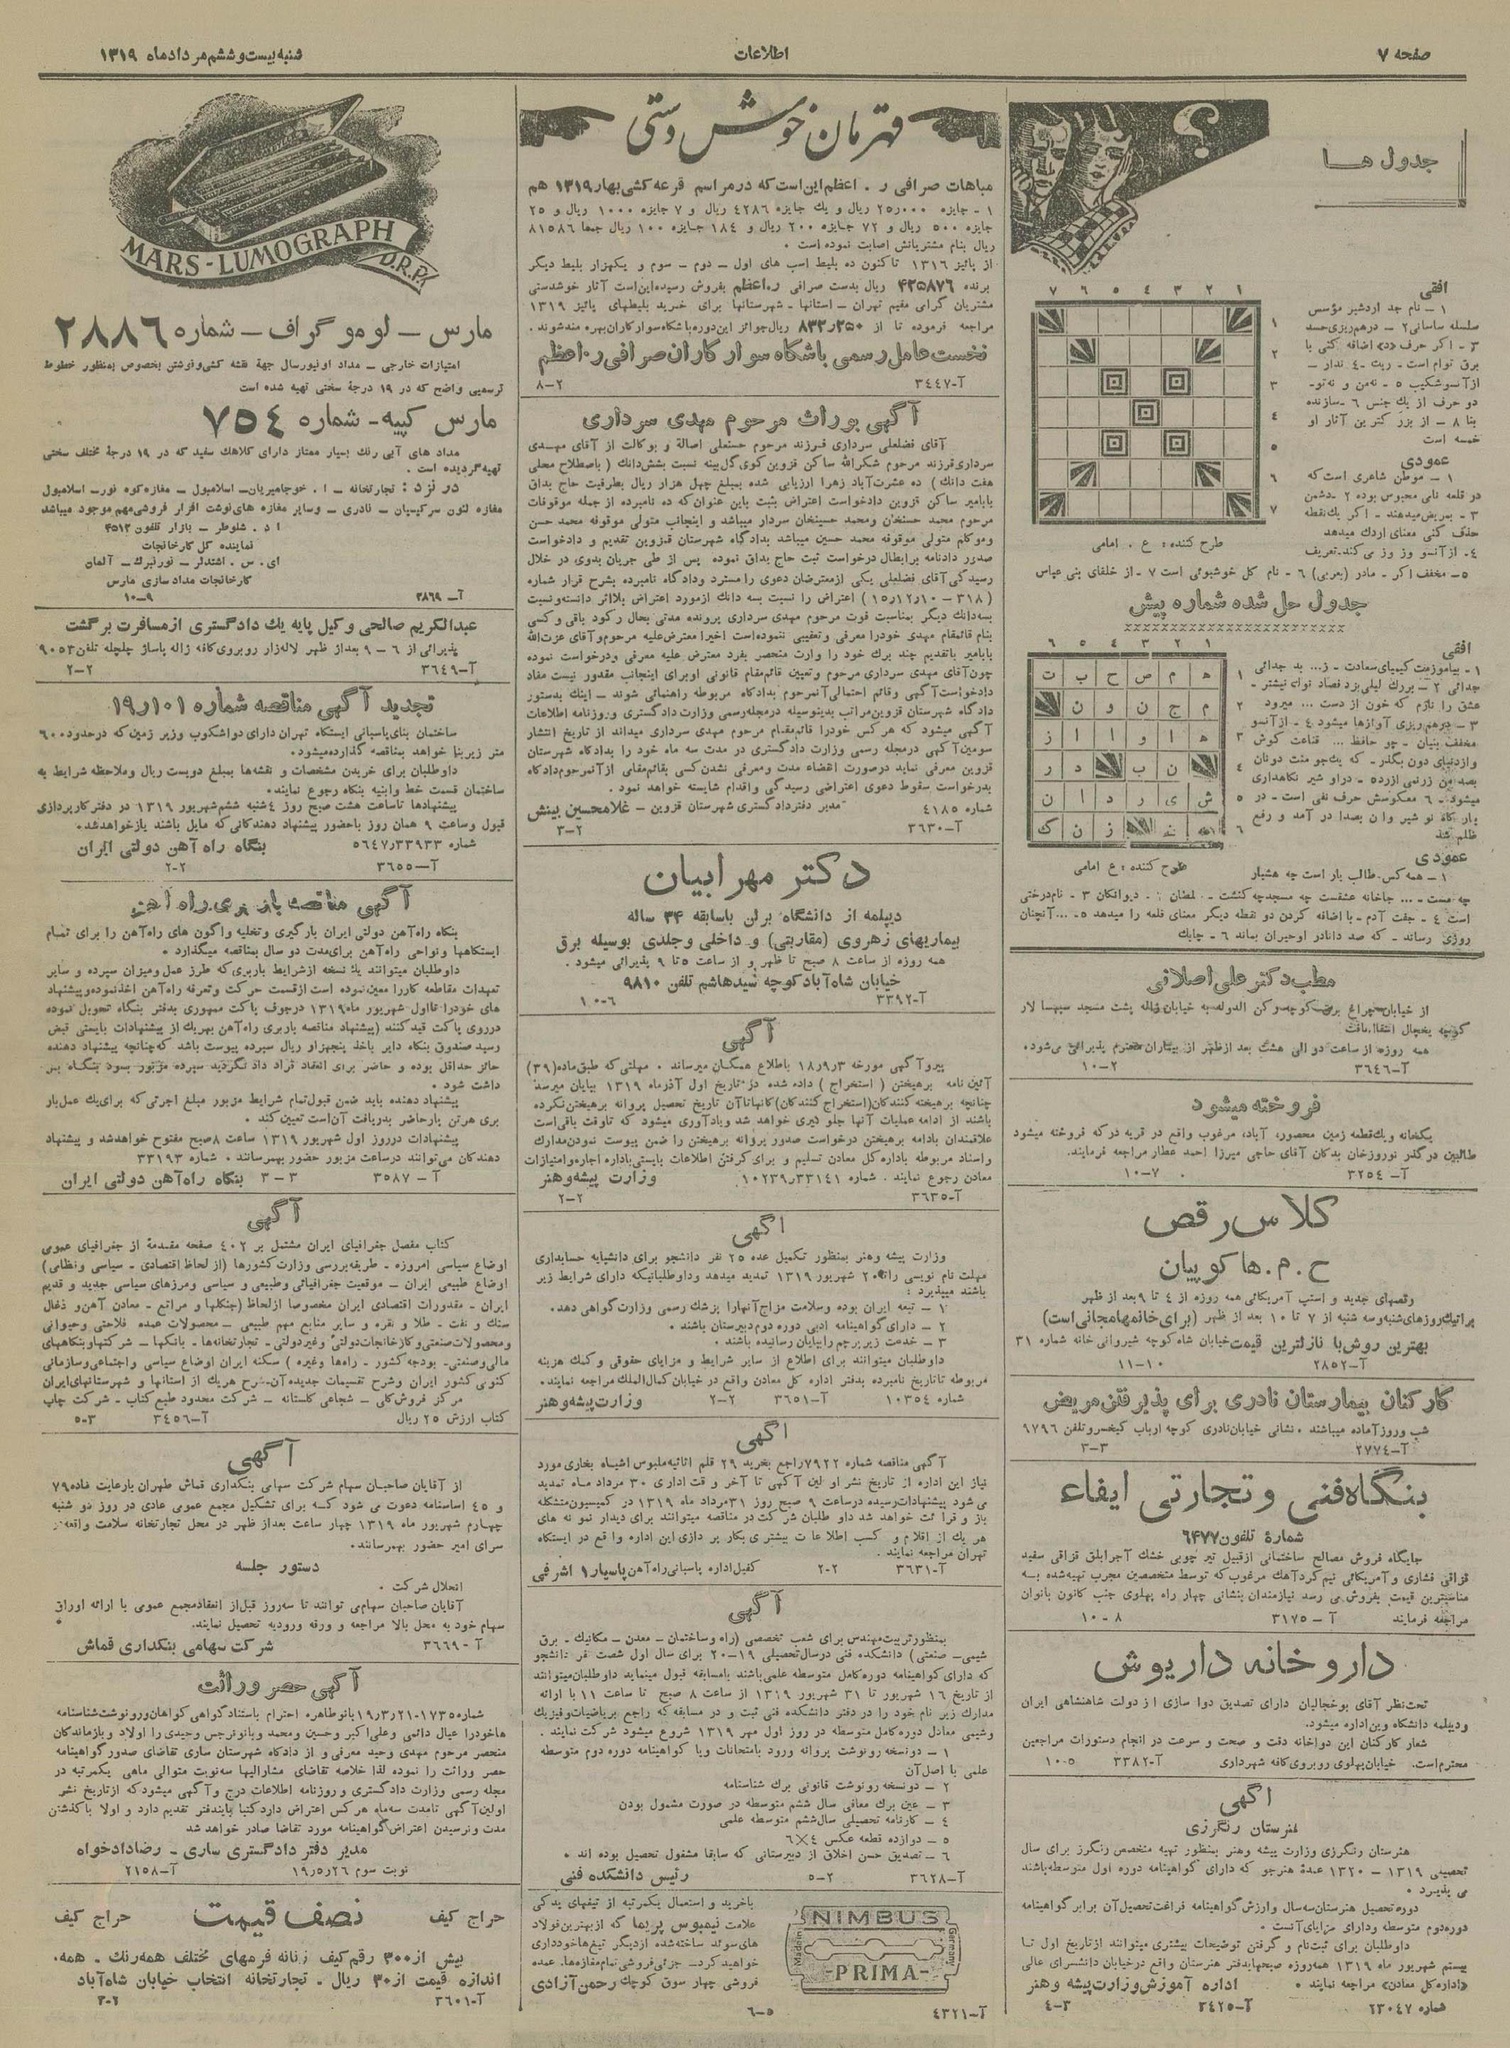 صفحه ۷
اطلاعات
شنبه بیست و ششم مرداد ماه ۱۳۱۹
جدول ها
افقی
۱ - نام جد اردشیر مؤسس
سلسله ساسانی ۲ - درهم ریزی حسد
۳ - اگر حرف «د» اضافه کنی با
از آنسو شکیب ۵ - نه من و نه تو -
دو حرف از یک جنس ۶ - سازنده
بنا ۸ - از بزرگترین آثار او
خمسه است
عمودی
۱ - موطن شاعری است که
در قلعه نای محبوس بوده ۲ - دشمن
۳ - بمریض میدهند - اگر یک نقطه
حذف کنی معنای اردک میدهد
۴ - از آنسو وز وز می کند - تعریف
۵ - مخفف اگر - مادر (بعربی) ۶ - نام گل خوشبوئی است ۷ - از خلفای بنی عباس
طرح کننده : ع . امامی
جدول حل شده شماره پیش
افقی
عمودی
طرح کننده : ع امامی
۱ - همه کس طالب یار است چه هشیار
چه مست - ... جاخانه عشقست چه مسجد چه کنشت
روزی رساند - که صد دانا در او حیران بماند ۶ - چابک
مطب دکتر علی اصلانی
از خیابان چراغ برق کوچه رکن الدوله به خیابان ژاله پشت مسجد سپهسالار
کوچه یخچال انتقال یافت
همه روزه از ساعت دو الی هشت بعد از ظهر از بیماران محترم پذیرائی می‌شود.
آ-۳۶۴۶ ۲-۱۰
فروخته میشود
یکخانه و یکقطعه زمین محصور، آباد، مرغوب واقع در قریه درکه فروخته میشود
طالبین در گذر نوروزخان بدکان آقای حاجی میرزا احمد عطار مراجعه فرمایند.
آ- ۳۲۵۴ ۷-۱۰
کلاس رقص
ح . م . هاکوپیان
رقصهای جدید و استپ آمریکائی همه روزه از ۴ تا ۹ بعد از ظهر
پراتیک روزهای شنبه و سه شنبه از ۷ تا ۱۰ بعد از ظهر (برای خانمها مجانی است)
بهترین روش با نازلترین قیمت خیابان شاه کوچه شیروانی خانه شماره ۳۱
آ-۲۸۵۲ ۱۰-۱۱
کارکنان بیمارستان نادری برای پذیرفتن مریض
شب و روز آماده میباشند . نشانی خیابان نادری کوچه ارباب کیخسرو تلفن ۹۷۹۶
آ-۲۷۷۴ ۳-۳
بنگاه فنی و تجارتی ایفاء
شمارهٔ تلفون ۶۴۷۷
جایگاه فروش مصالح ساختمانی از قبیل تیر چوبی خشک آجر ابلق قزاقی سفید
قزاقی فشاری و آمریکائی نیم گرد آهک مرغوب که توسط متخصصین مجرب تهیه شده به
مناسبترین قیمت بفروش می رسد نیازمندان بنشانی چهار راه پهلوی جنب کانون بانوان
مراجعه فرمایند آ - ۳۱۷۵ ۸ - ۱۰
داروخانه داریوش
تحت نظر آقای بوخجالیان دارای تصدیق دوا سازی از دولت شاهنشاهی ایران
و دیپلمه دانشگاه وین اداره میشود.
شعار کارکنان این دواخانه دقت و صحت و سرعت در انجام دستورات مراجعین
محترم است. خیابان پهلوی روبروی کافه شهرداری آ-۳۳۸۲ ۵-۱۰
آگهی
هنرستان رنگرزی
هنرستان رنگرزی وزارت پیشه و هنر بمنظور تهیه متخصص رنگرز برای سال
تحصیلی ۱۳۱۹ - ۱۳۲۰ عدهٔ هنرجو که دارای گواهینامه دوره اول متوسطه باشند
می پذیرد .
دوره تحصیل هنرستان سه سال و ارزش گواهینامه فراغت تحصیل آن برابر گواهینامه
دوره دوم متوسطه و دارای مزایای آنست .
داوطلبان برای ثبت نام و گرفتن توضیحات بیشتری میتوانند از تاریخ اول تا
بیستم شهریور ماه ۱۳۱۹ همه روزه صبحها بدفتر هنرستان واقع در خیابان دانشسرای عالی
«اداره کل معادن» مراجعه نمایند . اداره آموزش وزارت پیشه و هنر
شماره ۲۳۰۴۷ آ-۳۴۲۵ ۳-۴
قهرمان خوش دستی
مباهات صرافی ر . اعظم این است که در مراسم قرعه کشی بهار ۱۳۱۹ هم
۱ - جایزه ۲۵٫۰۰۰ ریال و یک جایزه ۴۲۸۶ ریال و ۷ جایزه ۱۰۰۰ ریال و ۲۵
جایزه ۵۰۰ ریال و ۷۲ جایزه ۲۰۰ ریال و ۱۸۴ جایزه ۱۰۰ ریال جمعا ۸۱۵۸۶
ریال بنام مشتریانش اصابت نموده است .
از پائیز ۱۳۱۶ تاکنون ده بلیط اسب های اول - دوم - سوم و یکهزار بلیط دیگر
برنده ۴۲۵۸۷۶ ریال بدست صرافی ر.اعظم بفروش رسیده این است آثار خوشدستی
مشتریان گرامی مقیم تهران - استانها - شهرستانها برای خرید بلیطهای پائیز ۱۳۱۹
مراجعه فرموده تا از ۸۳۲٫۲۵۰ ریال جوائز این دوره باشگاه سوارکاران بهره مند شوند .
نخست عامل رسمی باشگاه سوارکاران صرافی ر.اعظم
آ-۳۴۴۷ ۲-۸
آگهی بوراث مرحوم مهدی سرداری
آقای فضلعلی سرداری فرزند مرحوم حسنعلی اصالة و بوکالت از آقای مهدی
سرداری فرزند مرحوم شکرالله ساکن قزوین کوی گل بینه نسبت بشش دانگ ( باصطلاح محلی
هفت دانگ ) ده عشرت آباد زهرا ارزیابی شده بمبلغ چهل هزار ریال بطرفیت حاج بداق
بابامیر ساکن قزوین دادخواست اعتراض بثبت باین عنوان که ده نامبرده از جمله موقوفات
مرحوم محمد حسنخان و محمد حسینخان سردار میباشد و اینجانب متولی موقوفه محمد حسن
و موکلم متولی موقوفه محمد حسین میباشد بدادگاه شهرستان قزوین تقدیم و دادخواست
صدور دادنامه برابطال درخواست ثبت حاج بداق نموده پس از طی جریان بدوی در خلال
رسیدگی آقای فضلعلی یکی از معترضان دعوی را مسترد و دادگاه نامبرده بشرح قرار شماره
(۳۱۸ - ۱۰ر۱۲ر۱۵) اعتراض را نسبت بسه دانگ از مورد اعتراض بلااثر دانسته و نسبت
بسه دانگ دیگر بمناسبت فوت مرحوم مهدی سرداری پرونده مدتی بحال رکود باقی و کسی
بنام قائمقام مهدی خود را معرفی و تعقیبی ننموده است اخیرا معترض علیه مرحوم و آقای عزت الله
بابامیر باتقدیم چند برگ خود را وارث منحصر بفرد معترض علیه معرفی و درخواست نموده
چون آقای مهدی سرداری مرحوم و تعیین قائم مقام قانونی او برای اینجانب مقدور نیست مفاد
دادخواست آگهی وقائم احتمالی آنمرحوم بدادگاه مربوطه راهنمائی شوند - اینک بدستور
دادگاه شهرستان قزوین مراتب بدینوسیله در مجله رسمی وزارت دادگستری و روزنامه اطلاعات
آگهی میشود که هرکس خود را قائم مقام مرحوم مهدی سرداری میداند از تاریخ انتشار
سومین آگهی در مجله رسمی وزارت دادگستری در مدت سه ماه خود را بدادگاه شهرستان
قزوین معرفی نماید در صورت انقضاء مدت و معرفی نشدن کسی بقائم مقامی از آنمرحوم دادگاه
بدرخواست سقوط دعوی اعتراضی رسیدگی و اقدام شایسته خواهد نمود .
شماره ۴۱۸۵ مدیر دفتر دادگستری شهرستان قزوین - غلامحسین بینش
آ-۳۶۳۰ ۲-۳
دکتر مهرابیان
دیپلمه از دانشگاه برلن باسابقه ۳۴ ساله
بیماریهای زهروی (مقاربتی) و داخلی و جلدی بوسیله برق
همه روزه از ساعت ۸ صبح تا ظهر و از ساعت ۵ تا ۹ پذیرائی میشود .
خیابان شاه آباد کوچه سیدهاشم تلفن ۹۸۱۰
آ-۳۳۹۲ ۶-۱۰
آگهی
پیرو آگهی مورخه ۳ر۹ر۱۸ باطلاع همگان میرساند . مهلتی که طبق ماده (۳۹)
آئین نامه برهیختن ( استخراج ) داده شده در تاریخ اول آذر ماه ۱۳۱۹ بپایان میرسد
چنانچه برهیخته کنندگان (استخراج کنندگان) کانها تا آن تاریخ تحصیل پروانه برهیختن نکرده
باشند از ادامه عملیات آنها جلوگیری خواهد شد و یادآوری میشود که تا وقت باقی است
علاقمندان بادامه برهیختن درخواست صدور پروانه برهیختن را ضمن پیوست نمودن مدارک
و اسناد مربوطه باداره کل معادن تسلیم و برای گرفتن اطلاعات بایستی باداره اجاره و امتیازات
معادن رجوع نمایند . شماره ۱۰۲۳۹٫۳۳۱۴۱ وزارت پیشه و هنر
آ-۳۶۳۵ ۲-۲
آگهی
وزارت پیشه و هنر بمنظور تکمیل عده ۲۵ نفر دانشجو برای دانشپایه حسابداری
مهلت نام نویسی را تا ۲۰ شهریور ۱۳۱۹ تمدید میدهد و داوطلبانیکه دارای شرایط زیر
باشند میپذیرد :
۱ - تبعه ایران بوده و سلامت مزاج آنها را پزشک رسمی وزارت گواهی دهد .
۲ - دارای گواهینامه ادبی دوره دوم دبیرستان باشند .
۳ - خدمت زیر پرچم را بپایان رسانیده باشند .
داوطلبان میتوانند برای اطلاع از سایر شرایط و مزایای حقوقی و کمک هزینه
مربوطه تا تاریخ نامبرده بدفتر اداره کل معادن واقع در خیابان کمال الملک مراجعه نمایند .
شماره ۱۰۳۵۴ آ-۳۶۵۱ ۲-۲ وزارت پیشه و هنر
آگهی
آگهی مناقصه شماره ۷۹۲۲ راجع بخرید ۲۹ قلم اثاثیه ملبوس اشیاء بخاری مورد
نیاز این اداره از تاریخ نشر اولین آگهی تا آخر وقت اداری ۳۰ مرداد ماه تمدید
می شود پیشنهادات رسیده در ساعت ۹ صبح روز ۳۱ مرداد ماه ۱۳۱۹ در کمیسیون متشکله
باز و قرائت خواهد شد داوطلبان شرکت در مناقصه میتوانند برای دیدار نمونه های
هر یک از اقلام و کسب اطلاعات بیشتری بکارپردازی این اداره واقع در ایستگاه
تهران مراجعه نمایند .
آ-۳۶۳۱ ۲-۲ کفیل اداره پاسبانی راه آهن پاسیار ۱ اشرفی
آگهی
بمنظور تربیت مهندس برای شعب تخصصی (راه و ساختمان - معدن - مکانیک - برق
شیمی - صنعتی) دانشکده فنی در سال تحصیلی ۱۹-۲۰ برای سال اول شصت نفر دانشجو
که دارای گواهینامه دوره کامل متوسطه علمی باشند بامسابقه قبول مینماید داوطلبان میتوانند
از تاریخ ۱۶ شهریور تا ۳۱ شهریور ۱۳۱۹ از ساعت ۸ صبح تا ساعت ۱۱ با ارائه
مدارک زیر نام خود را در دفتر دانشکده فنی ثبت و در مسابقه که راجع بریاضیات و فیزیک
و شیمی معادل دوره کامل متوسطه در روز اول مهر ۱۳۱۹ شروع میشود شرکت نمایند .
۱ - دو نسخه رونوشت پروانه ورود بامتحانات و یا گواهینامه دوره دوم متوسطه
علمی با اصل آن
۲ - دو نسخه رونوشت قانونی برگ شناسنامه
۳ - عین برگ معافی سال ششم متوسطه در صورت مشمول بودن
۴ - کارنامه تحصیلی سال ششم متوسطه علمی
۵ - دوازده قطعه عکس ۴×۶
۶ - تصدیق حسن اخلاق از دبیرستانی که سابقا مشغول تحصیل بوده اند .
آ-۳۶۲۸ ۲-۵ رئیس دانشکده فنی
NIMBUS
PRIMA
Made in
Germany
باخرید و استعمال یکمرتبه از تیغهای یدکی
علامت نیمبوس پریما که از بهترین فولاد
های سوئد ساخته شده از دیگر تیغها خودداری
خواهید کرد - جزئی فروشی تمام مغازه ها . عمده
فروشی چهار سوق کوچک رحمن آزادی
آ-۴۳۲۱ ۵-۶
MARS-LUMOGRAPH
D.R.P.
مارس - لوموگراف - شماره ۲۸۸۶
امتیازات خارجی - مداد اونیورسال جهة نقشه کشی و نوشتن بخصوص بمنظور خطوط
ترسیمی واضح که در ۱۹ درجهٔ سختی تهیه شده است
مارس کپیه - شماره ۷۵۴
مداد های آبی رنگ بسیار ممتاز دارای کلاهک سفید که در ۱۹ درجهٔ مختلف سختی
تهیه گردیده است .
در نزد : تجارتخانه - ا . خوجامیریان - اسلامبول - مغازه کوه نور - اسلامبول
مغازه لئون سرکیسیان - نادری - و سایر مغازه های نوشت افزار فروشی مهم موجود میباشد
ا د . شلوطر - بازار تلفون ۴۵۱۳
نماینده کل کارخانجات
ای . س . اشتدلر - نورنبرک - آلمان
کارخانجات مداد سازی مارس
آ- ۲۸۶۹ ۹-۱۰
عبدالکریم صالحی وکیل پایه یک دادگستری از مسافرت برگشت
پذیرائی از ۶ - ۹ بعد از ظهر لاله زار روبروی کافه ژاله پاساژ چلچله تلفن ۹۰۵۳
آ-۳۶۴۹ ۲-۲
تجدید آگهی مناقصه شماره ۱۰۱ر۱۹
ساختمان بنای پاسبانی ایستگاه تهران دارای دو اشکوب و زیر زمین که در حدود ۶۰۰
متر زیربنا خواهد بمناقصه گذارده میشود .
داوطلبان برای خریدن مشخصات و نقشه ها بمبلغ دویست ریال و ملاحظه شرایط به
ساختمان قسمت خط و ابنیه بنگاه رجوع نمایند .
پیشنهادها تا ساعت هشت صبح روز ۴ شنبه ششم شهریور ۱۳۱۹ در دفتر کارپردازی
قبول و ساعت ۹ همان روز باحضور پیشنهاد دهندگانی که مایل باشند باز خواهد شد .
شماره ۵۶۴۷٫۳۳۹۳۳ بنگاه راه آهن دولتی ایران
آ-۳۶۵۵ ۲-۲
آگهی مناقصه باربری راه آهن
بنگاه راه آهن دولتی ایران بارگیری و تخلیه واگون های راه آهن را برای تمام
ایستگاهها و نواحی راه آهن برای مدت دو سال بمناقصه میگذارد .
داوطلبان میتوانند یک نسخه از شرایط باربری که طرز عمل و میزان سپرده و سایر
تعهدات مقاطعه کار را معین نموده است از قسمت حرکت و تعرفه راه آهن اخذ نموده و پیشنهاد
های خود را تا اول شهریور ماه ۱۳۱۹ در جوف پاکت ممهوری بدفتر بنگاه تحویل نموده
در روی پاکت قید کنند (پیشنهاد مناقصه باربری راه آهن بهر یک از پیشنهادات بایستی قبض
رسید صندوق بنگاه دایر باخذ پنجهزار ریال سپرده پیوست باشد که چنانچه پیشنهاد دهنده
حائز حداقل بوده و حاضر برای انعقاد قرار داد نگردید سپرده مزبور بسود بنگاه بر
داشت شود .
پیشنهاد دهنده باید ضمن قبول تمام شرایط مزبور مبلغ اجرتی که برای یک عمل بار
بری هر تن بار حاضر بدریافت آن است تعیین کند .
پیشنهادات در روز اول شهریور ۱۳۱۹ ساعت ۸ صبح مفتوح خواهد شد و پیشنهاد
دهندگان می توانند در ساعت مزبور حضور بهمرسانند . شماره ۳۳۱۹۳
آ - ۳۵۸۷ ۳-۳ بنگاه راه آهن دولتی ایران
آگهی
کتاب مفصل جغرافیای ایران مشتمل بر ۴۰۲ صفحه مقدمهٔ از جغرافیای عمومی
اوضاع سیاسی امروزه - طریقه بررسی وزارت کشورها (از لحاظ اقتصادی - سیاسی و نظامی)
اوضاع طبیعی ایران - موقعیت جغرافیائی و طبیعی و سیاسی و مرزهای سیاسی جدید و قدیم
ایران - مقدورات اقتصادی ایران مخصوصا از لحاظ (جنگلها و مراتع - معادن آهن و ذغال
سنگ و نفت - طلا و نقره و سایر منابع مهم طبیعی - محصولات عمده فلاحتی و حیوانی
و محصولات صنعتی و کارخانجات دولتی و غیر دولتی - تجارتخانه ها - بانکها - شرکتها و بنگاههای
مالی و صنعتی - بودجه کشور - راه ها و غیره ) سکنه ایران اوضاع سیاسی و اجتماعی و سازمانی
کنونی کشور ایران و شرح تقسیمات جدیده آن - شرح هر یک از استانها و شهرستانهای ایران
مرکز فروش کلی - شجاعی گلستانه - شرکت محدود طبع کتاب - شرکت چاپ
کتاب ارزش ۲۵ ریال آ-۳۴۵۶ ۳-۵
آگهی
از آقایان صاحبان سهام شرکت سهامی بنکداری قماش طهران بارعایت ماده ۷۹
و ۴۵ اساسنامه دعوت می شود که برای تشکیل مجمع عمومی عادی در روز دو شنبه
چهارم شهریور ماه ۱۳۱۹ چهار ساعت بعد از ظهر در محل تجارتخانه سلامت واقعه در
سرای امیر حضور بهمرسانند .
دستور جلسه
انحلال شرکت .
آقایان صاحبان سهام می توانند تا سه روز قبل از انعقاد مجمع عمومی با ارائه اوراق
سهام خود به محل بالا مراجعه و ورقه ورودیه تحصیل نمایند .
آ - ۳۶۶۹ شرکت سهامی بنکداری قماش
آگهی حصر وراثت
شماره ۱۷۳۵-۲۱ر۳ر۱۹ بانو طاهره احترام باستناد گواهی گواهان و رونوشت شناسنامه
ها خود را عیال دائمی و علی اکبر و حسین و محمد و بانو نرجس وحیدی را اولاد و بازماندگان
منحصر مرحوم مهدی وحید معرفی و از دادگاه شهرستان ساری تقاضای صدور گواهینامه
حصر وراثت را نموده لذا خلاصه تقاضای مشارالیها سه نوبت متوالی ماهی یکمرتبه در
مجله رسمی وزارت دادگستری و روزنامه اطلاعات درج و آگهی میشود که از تاریخ نشر
اولین آگهی تا مدت سه ماه هر کس اعتراض دارد کتبا باین دفتر تقدیم دارد و اولا با گذشتن
مدت و نرسیدن اعتراض گواهینامه مورد تقاضا صادر خواهد شد
مدیر دفتر دادگستری ساری - رضا دادخواه
نوبت سوم ۲۶ر۵ر۱۹ آ-۲۱۵۸
حراج کیف نصف قیمت حراج کیف
بیش از ۳۰۰ رقم کیف زنانه فرمهای مختلف همه رنگ - همه
اندازه قیمت از ۳۰ ریال - تجارتخانه انتخاب خیابان شاه آباد
آ-۳۶۰۱ ۲-۲